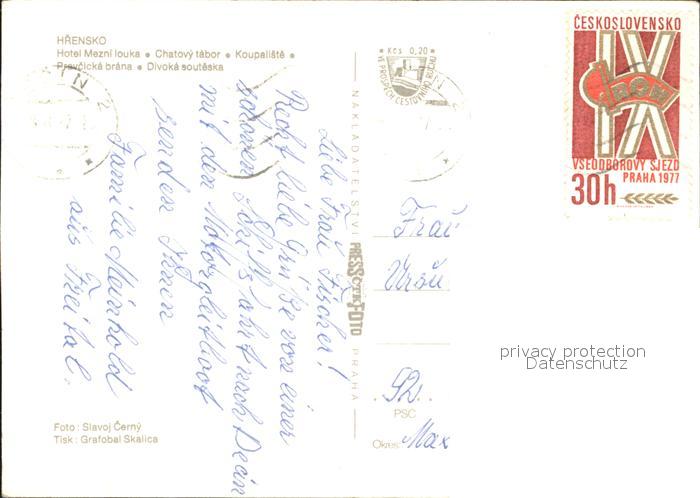 HŘENSKO
Hotel Mezní louka • Chatový tábor • Koupaliště •
Pravčická brána • Divoká soutěska
Kčs 0,20
VE PROSPĚCH CESTOVNÍHO RUCHU
ČESKOSLOVENSKO
IX
ROH
VŠEODBOROVÝ SJEZD
PRAHA 1977
30h
Liebe Frau Fischer!
Recht liebe Grüße von einer
schönen Schiffahrt nach Decin
mit den Motorgleitboot
senden Ihnen
Familie Meinhold
aus Freital.
NAKLADATELSTVÍ PRESSFOTO PRAHA
Frau
92
PSC
Okres Max
privacy protection
Datenschutz
Foto : Slavoj Černý
Tisk : Grafobal Skalica